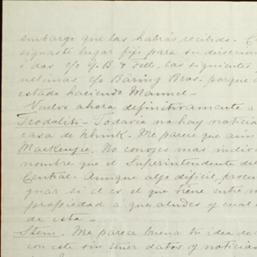 embargo que las habrás recibido.
signaste lugar fijo para su direccion
i dos c/o J. B. & Fell, las siguientes
ultimas, c/o Baring Bros. porque
estado haciendo Manuel.
Vuelvo ahora definitivamente a
Teodolito. Todavia no hay noticia
casa de Klink. Me parece que aun
Mackenzie. No conoces mas indivi
nombre que el Superintendente del
Central. Aunque algo dificil, procu
gnar si el es el que tiene entre m
propiedad a que aludes y cual
de esta.
Stein. Me parece buena tu idea de
con este sin tener datos y noticias